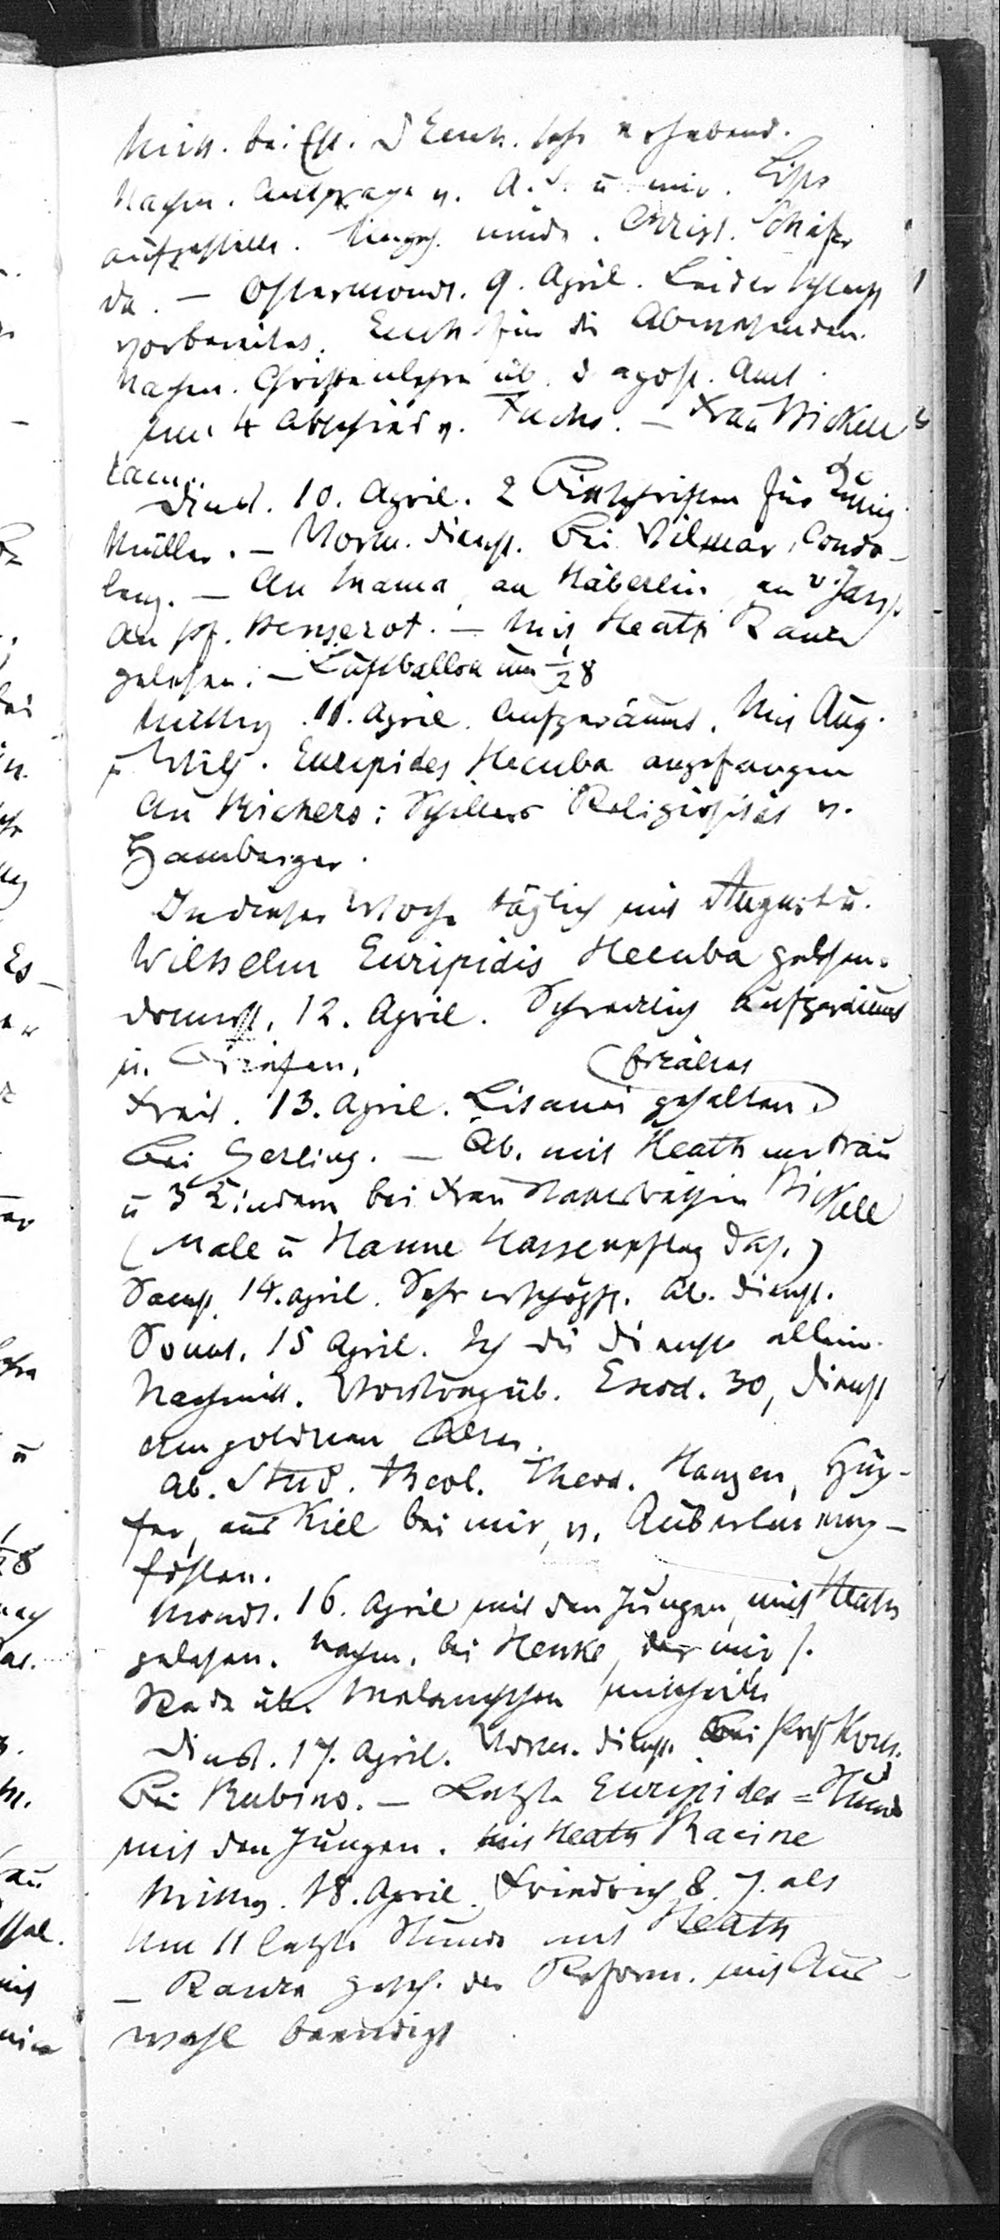 Mitt. bei Ess. d. Euch. sehr erhebend.
Nachm. Ansprache v. A. S. u mir. Lips
aufgestellt. Ungez. müde. Christ. Schäfer
da. — Ostermond. 9. April. Leider schlecht
vorbereitet. Euch. für die Abwesenden.
Nachm. Christenlehre üb. d apost. Amt.
Um 4 Abschied v. Fuchs. — Frau Bickell
kam.
Dienst. 10. April. 2 Bittschriften für
Müller. — Vorm. Dienst. Bei Vilmar, Condo-
lenz. — An Mama, an Häberlin, an
An Pf. — Mit Heath Ranke
gelesen. — Luftballon um ½8
Mittw. 11. April. Aufgeräumt. Mit Aug.
u Wilh. Euripides Hecuba angefangen
An Richers: Schillers Religiosität v.
Hamberger.
In dieser Woche täglich mit August u.
Wilhelm Euripidis Hecuba gelesen.
Donnerst. 12. April. Schrecklich aufgeräumt
u.
Freit. 13. April. Litanei gehalten
Bei Gerling. — Ab. mit Heath u Frau
u 3 Kindern bei Frau Staatsräthin Bickell
(Male u Hanne Hassenpflug das.)
Samst 14. April. Sehr erschöpft. Ab. Dienst.
Sonnt. 15 April. Ich die Dienste allein.
Nachmitt. Vortrag üb. Exod. 30, Dienst
am goldnen Altar.
Ab. Stud. Theol. Theod. Hansen,
aus Kiel bei mir, v. Auberlen emp-
fohlen.
Mond. 16. April mit den Jungen, mit Heath
gelesen. Nachm. bei Henke, der mir s.
Rede üb. Melanchthon mittheilte
Dienst. 17. April. Vorm. Dienst. Bei Prof
Bei Rubino. — Letzte Euripides-Stunde
mit den Jungen. Mit Heath Racine
Mittw. 18. April. Friedrich 8 J. alt
Um 11 letzte Stunde mit Heath
— Ranke Gesch. der Reform. mit Aus-
wahl beendigt